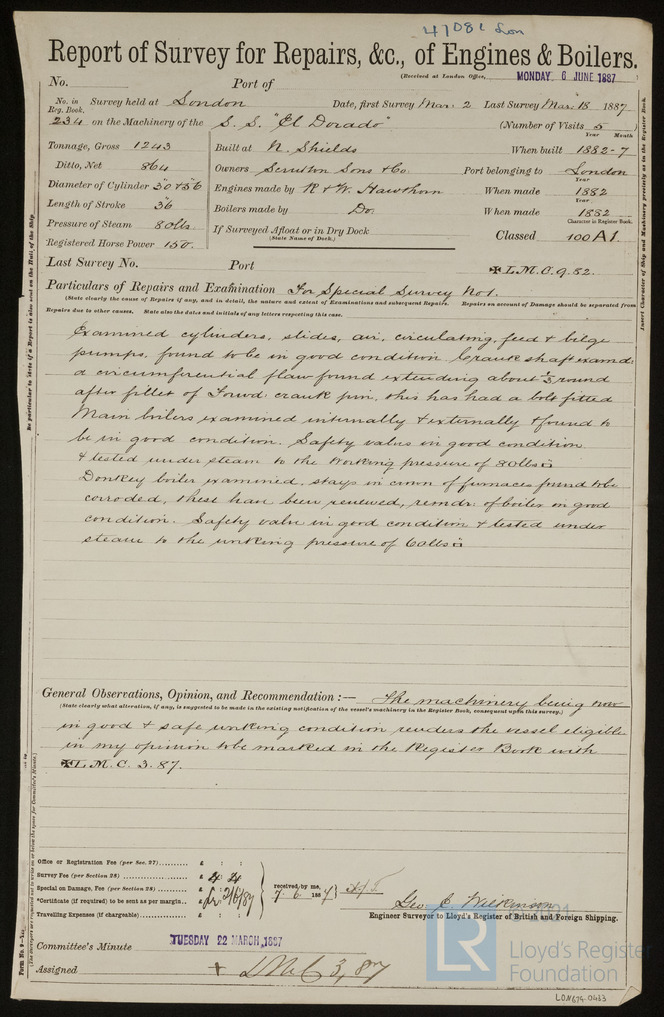 47081 Lon
Report of Survey for Repairs, &c., of Engines & Boilers.
(Received at London Office, MONDAY 6 JUNE 1887
No. Port of
No. in Reg. Book. Survey held at London Date, first Survey Mar. 2 Last Survey Mar. 18 1887
234 on the Machinery of the S. S. "El Dorado" (Number of Visits 5
Year Month
Tonnage, Gross 1243 Built at N. Shields When built 1882-7
Ditto, Net 864 Owners Scrutton Sons & Co. Port belonging to London
Diameter of Cylinder 30 & 56 Engines made by R & W. Hawthorn When made 1882
Length of Stroke 36 Boilers made by Do. When made 1882
Pressure of Steam 80lbs If Surveyed Afloat or in Dry Dock
(State Name of Dock.)
Character in Register Book.
Registered Horse Power 150. Classed 100A1.
Last Survey No. Port ✠L.M.C. 9.82.
Particulars of Repairs and Examination For Special Survey No 1.
(State clearly the cause of Repairs if any, and in detail, the nature and extent of Examinations and subsequent Repairs. Repairs on account of Damage should be separated from
Repairs due to other causes. State also the dates and initials of any letters respecting this case.
Examined cylinders, slides, air, circulating, feed & bilge
pumps, found to be in good condition. Crank shaft examd:
a circumferential flaw found extending about 1/5 round
after fillet of Forwd crank pin, this has had a bolt fitted
Main boilers examined internally & externally & found to
be in good condition. Safety valves in good condition
& tested under steam to the working pressure of 80lbs □
Donkey boiler examined, stays in crown of furnaces found to be
corroded, these have been renewed, remdr. of boiler in good
condition. Safety valve in good condition & tested under
steam to the working pressure of 60lbs □
General Observations, Opinion, and Recommendation :— The machinery being now
(State clearly what alteration, if any, is suggested to be made in the existing notification of the vessel's machinery in the Register Book, consequent upon this survey.)
in good & safe working condition renders the vessel eligible
in my opinion to be marked in the Register Book with
✠L.M.C. 3.87.
Office or Registration Fee (per Sec. 27) £ : :
Survey Fee (per Section 28) £ 4 4
Special on Damage, Fee (per Section 28) £
*Certificate (if required) to be sent as per margin
Travelling Expenses (if chargeable) £ : :
received by me,
7. 6 1887
Geo C. Wilkinson
Engineer Surveyor to Lloyd's Register of British and Foreign Shipping.
Committee's Minute TUESDAY 22 MARCH 1887
Assigned + LMC 3,87
LR Lloyd's Register
Foundation
LON674-0433
Be particular to State if a Report is also sent on the Hull of the Ship.
Insert Character of Ship and Machinery precisely as in the Register Book